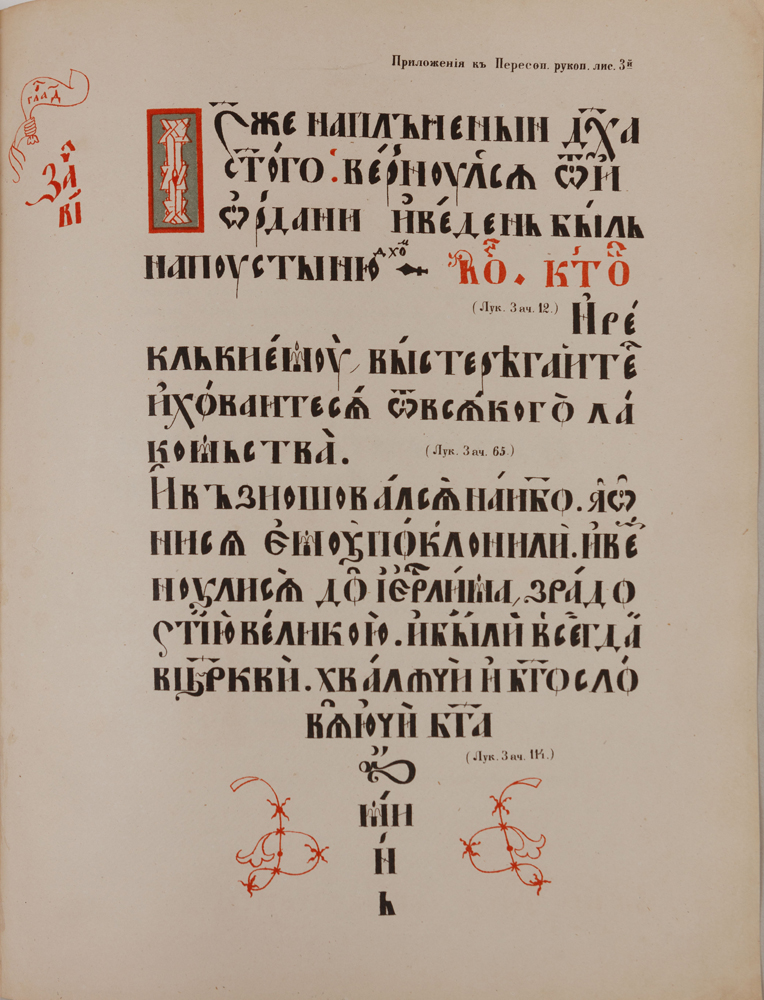 Приложенія къ Пересоп. рукоп. лис. 3й
глад
За҃ в҃і
І҃с же наплъненыи дх҃а
ст҃ого: верноулсѧ ѿи
ѡрдани и веденъ былъ
на поустыню дхо҃
(Лук. Зач. 12.) И ре
клъ к ние́моу, выстерѣгаитеⷭ҇
и ховаитесѧ ѿ всѧкого ла
комъства.
(Лук. Зач. 65.)
И възношовалсѧ на нб҃о. а ѡ
ни сѧ ємоу поклонили. и ве
ноулисѧ до іер҃лима, з радо
стїю великою. и были всегда
в цр҃кви. хвалѧчи и бг҃ословѧ
ючи бг҃а
(Лук. Зач. 114.)
а
ми
н
ь